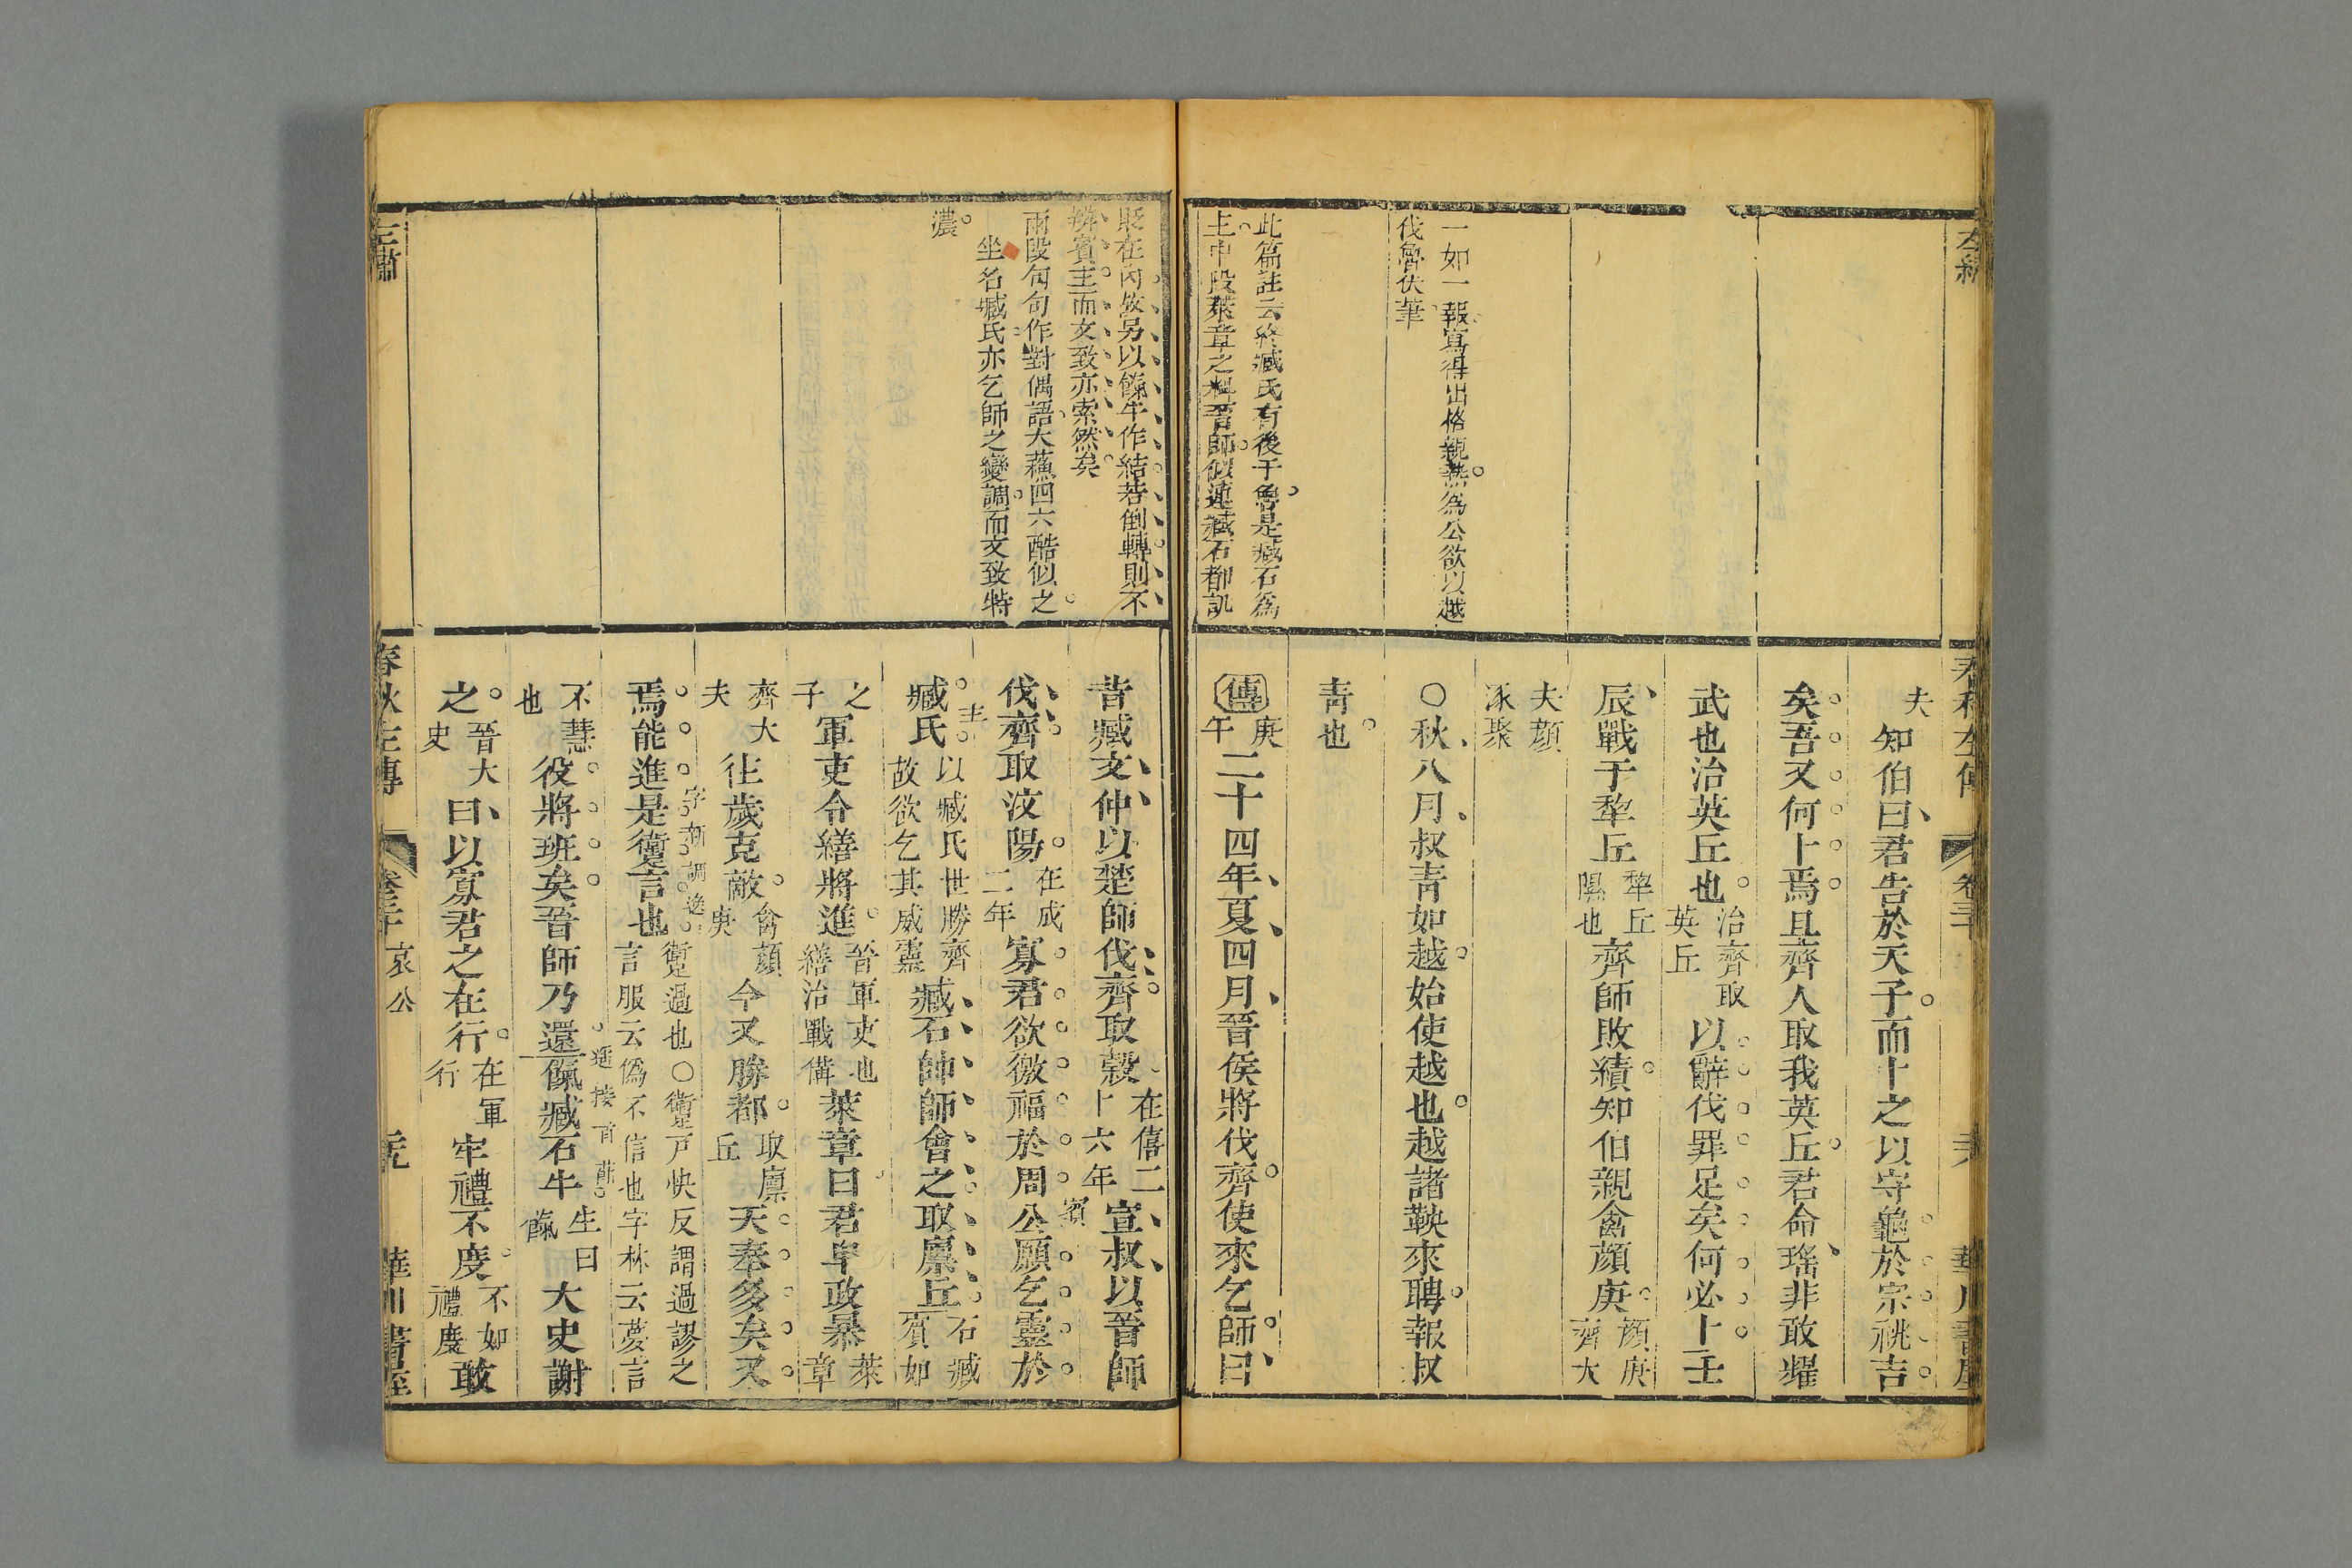 左繡
春秋左傳
卷三十
華川書屋
一如一報寫得出格親熱為公欲以越
伐魯伏筆
此篇註云終臧氏有後于魯是臧石為
主中段萊章之料晉師似連臧石都譏
夫知伯曰君告於天子而卜之以守龜於宗祧吉
矣吾又何卜焉且齊人取我英丘君命瑤非敢燿
武也治英丘也治齊取英丘以辭伐罪足矣何必卜壬
辰戰于犂丘犂丘隰也齊師敗績知伯親禽顏庚顏庚齊大
夫顏涿聚
○秋八月叔青如越始使越也越諸鞅來聘報叔
青也
傳庚午二十四年夏四月晉侯將伐齊使來乞師曰
貶在內故另以餼牛作結若倒轉則不
辨賓主而文致亦索然矣
兩段句句作對偶語大蘓四六酷似之
坐名臧氏亦乞師之變調而文致特
濃
昔臧文仲以楚師伐齊取穀在僖二十六年宣叔以晉師
伐齊取汶陽在成二年寡君欲徼福於周公願乞靈於
賓
臧氏以臧氏世勝齊故欲乞其威靈臧石帥師會之取廩丘石臧賓如
主
之子軍吏令繕將進晉軍吏也繕治戰備萊章曰君卑政暴萊章
齊大夫往歲克敵禽顏庚今又勝都取廩丘天奉多矣又
焉能進是躗言也躗過也○躗戸快反謂過謬之言服云僞不信也字林云夢言
不慧也役將班矣晉師乃還餼臧石牛生曰餼大史謝
之晉大史曰以寡君之在行在軍行牢禮不度不如禮度敢
左繡
春秋左傳
卷三十
哀公
華川書屋